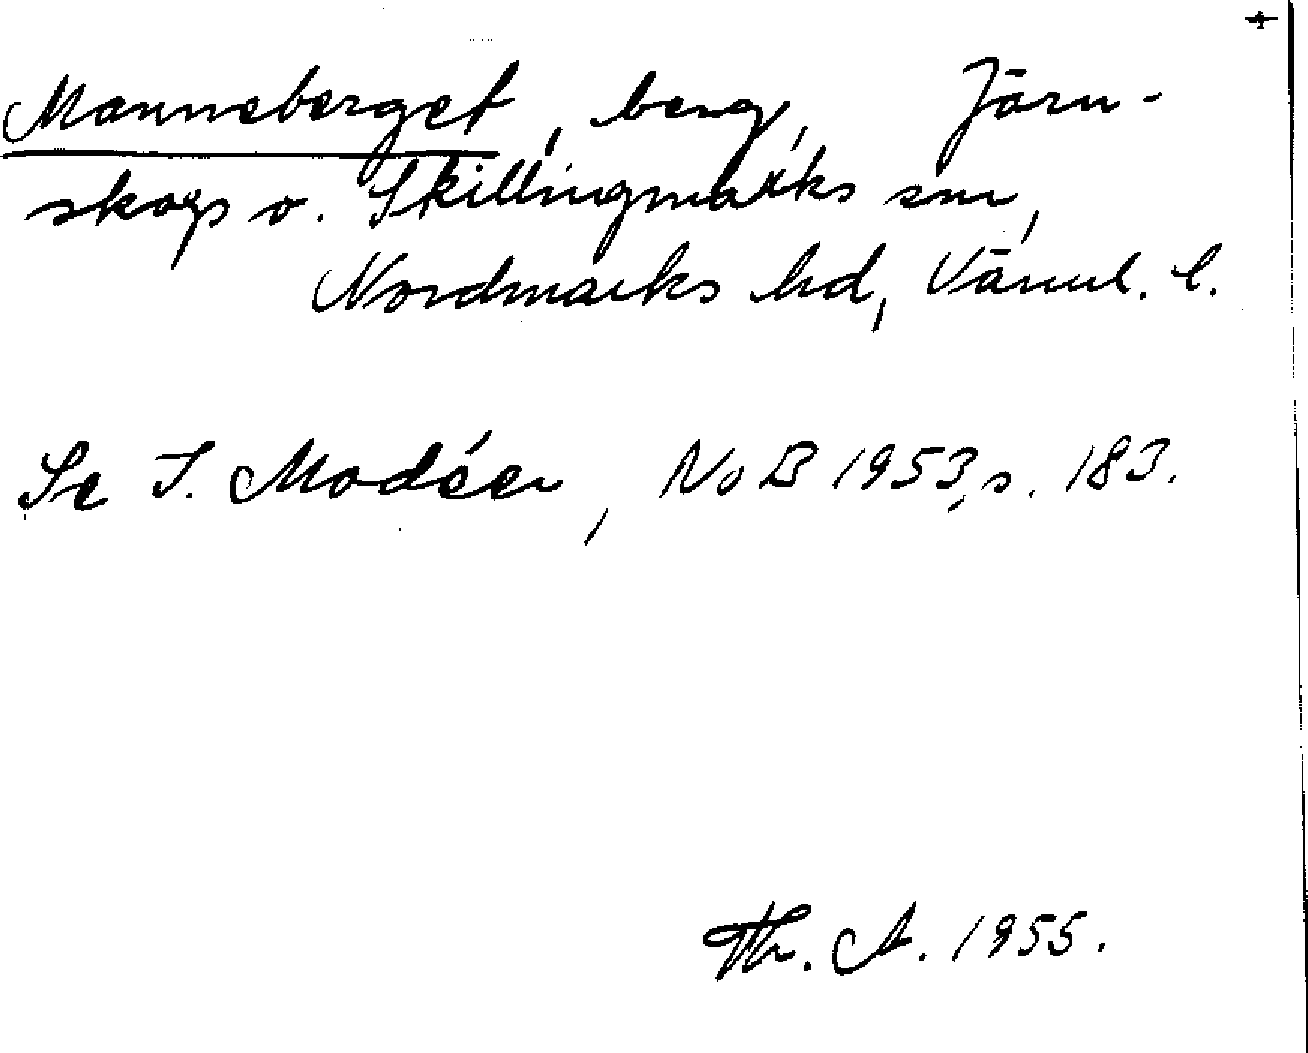 Manneberget, berg, Järn-
skogs o. Skillingmarks snr,
Nordmarks hd, Värml. l.
Se I. Modéer, NoB 1953, s. 183.
Th. A. 1955.